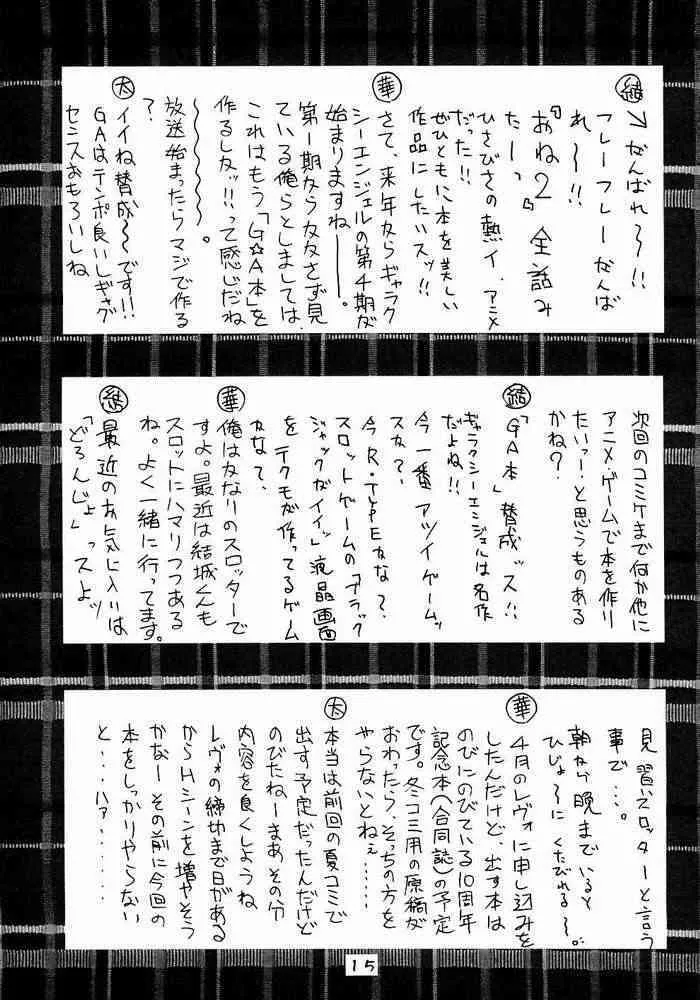 結→がんばれ〜!!
フレーフレーがんば
れ〜!!
『あね2』全話み
たーっ
ひさびさの熱イ、アニメ
だった!!
ぜひともに本を美しい
作品にしたいスッ!!
華
さて、来年からギャラク
シーエンジェルの第4期が
始まりますねー。
第一期からかかさず見
ている俺らとしましては、
これはもう「G☆A本」を
作るしか!!って感じだね
〜〜〜〜。
放送始まったらマジで作る
?
太
イイね賛成〜です!!
GAはテンポ良いしギャグ
センスおもろいしね
次回のコミケまで何か他に
アニメ・ゲームで本を作り
たいっー!と思うものある
かね?
結
「GA本」賛成ッス!!
ギャラクシーエンジェルは名作
だよね!!
今一番アツイゲームッ
スか?、
今R・TYPEかな?、
スロットゲームの「ブラック
ジャックがイイッ」液晶画面
をテクモが作ってるゲーム
かな?、
華
俺はかなりのスロッターで
すよ。最近は結城くんも
スロットにハマりつつある
ね。よく一緒に行ってます。
結
最近のお気に入りは
「どろんじょ」っスよッ
見習いスロッターと言う
事で…。
朝から晩までいると
ひじょ〜にくたびれる〜。
華
4月のレヴォに申し込みを
したんだけど、出す本は
のびにのびている10周年
記念本(合同誌)の予定
です。冬コミ用の原稿が
おわったら、そっちの方を
やらないとねぇ……
太
本当は前回の夏コミで
出す予定だったんだけど
のびたねーまあその分
内容を良くしようね
レヴォの締切まで日がある
からHシーンを増やそう
かなー その前に今回の
本をしっかりやらない
と…ハァ……
15